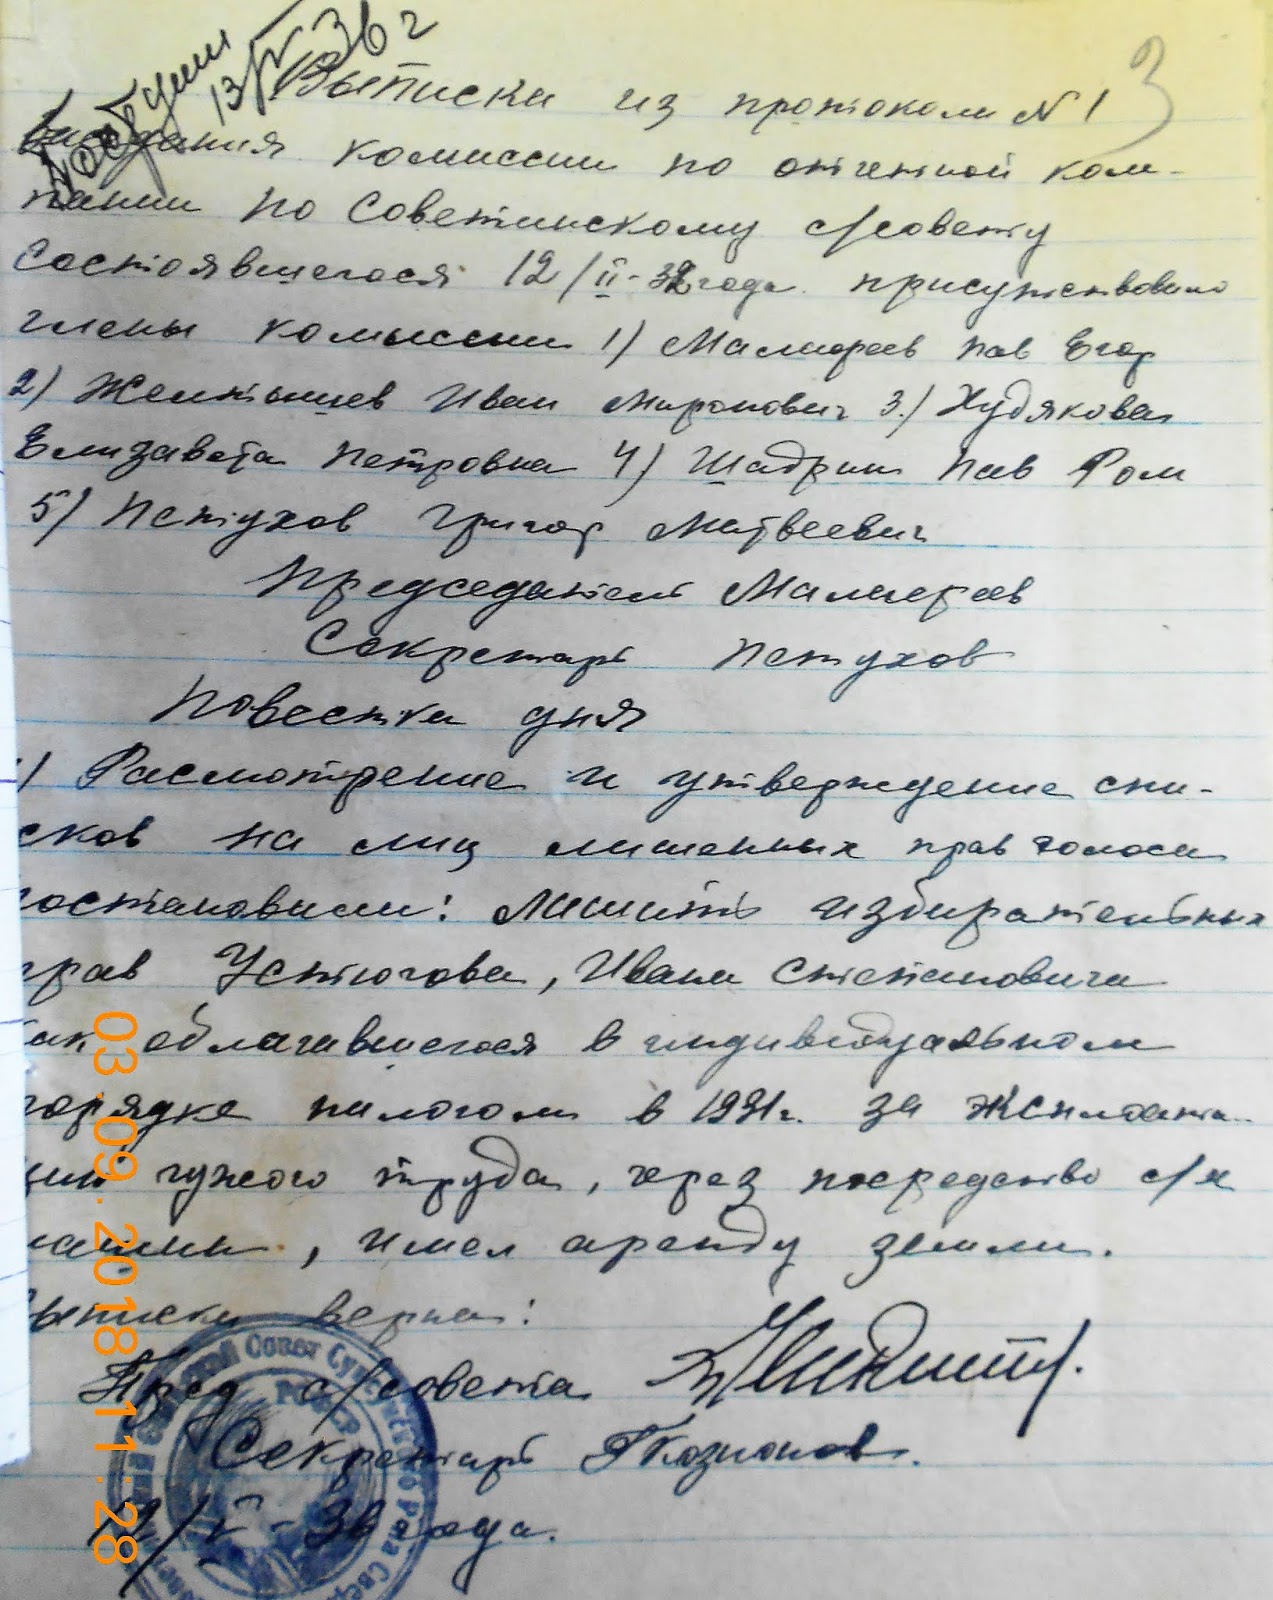 13/V 36 г
3
Выписка из протокола N 1
заседания комиссии по отчетной кам-
пании по Советинскому с/совету
Состоявшегося 12/II-32 года. присутствовали
члены комыссии 1) Малиореев Пав Егор
2) Желтышев Иван Миронович 3.) Худякова
Елизавета Петровна 4) Шадрин Пав Ром
5) Петухов Григор Матвеевич
Председатель
Секретарь Петухов
Повестка дня
1) Расмотрение и утверждение спи-
сков на лиц лишенных прав голоса
постановили: Лишить избирательных
прав Устюгова, Ивана Степановича
как облагавшегося в индивидуальном
порядке налогом в 1931г. за эксплоата-
ции чужого труда, через посредство с/х
машин, имел аренду земли.
Выписка верна:
Пред с/совета
Секретарь
12/V-36 года.
Совет
РСФСР
03.09.2018 11:28